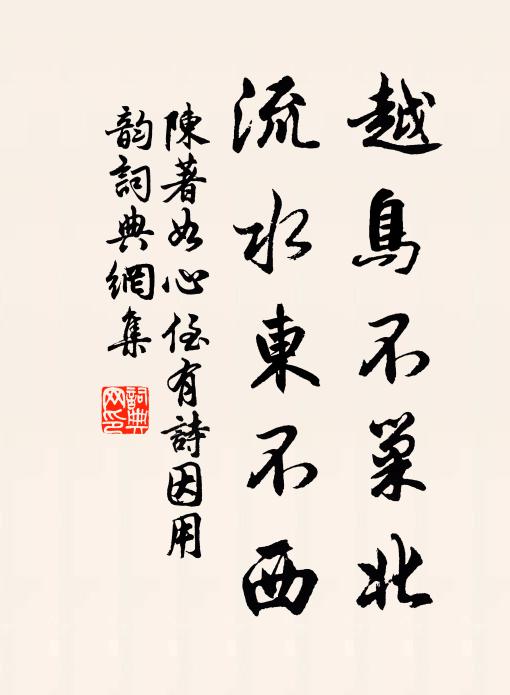 越鳥不巢北
流水東不西
陳著如心侄有詩因用
韵詞典網集
詞典
网印